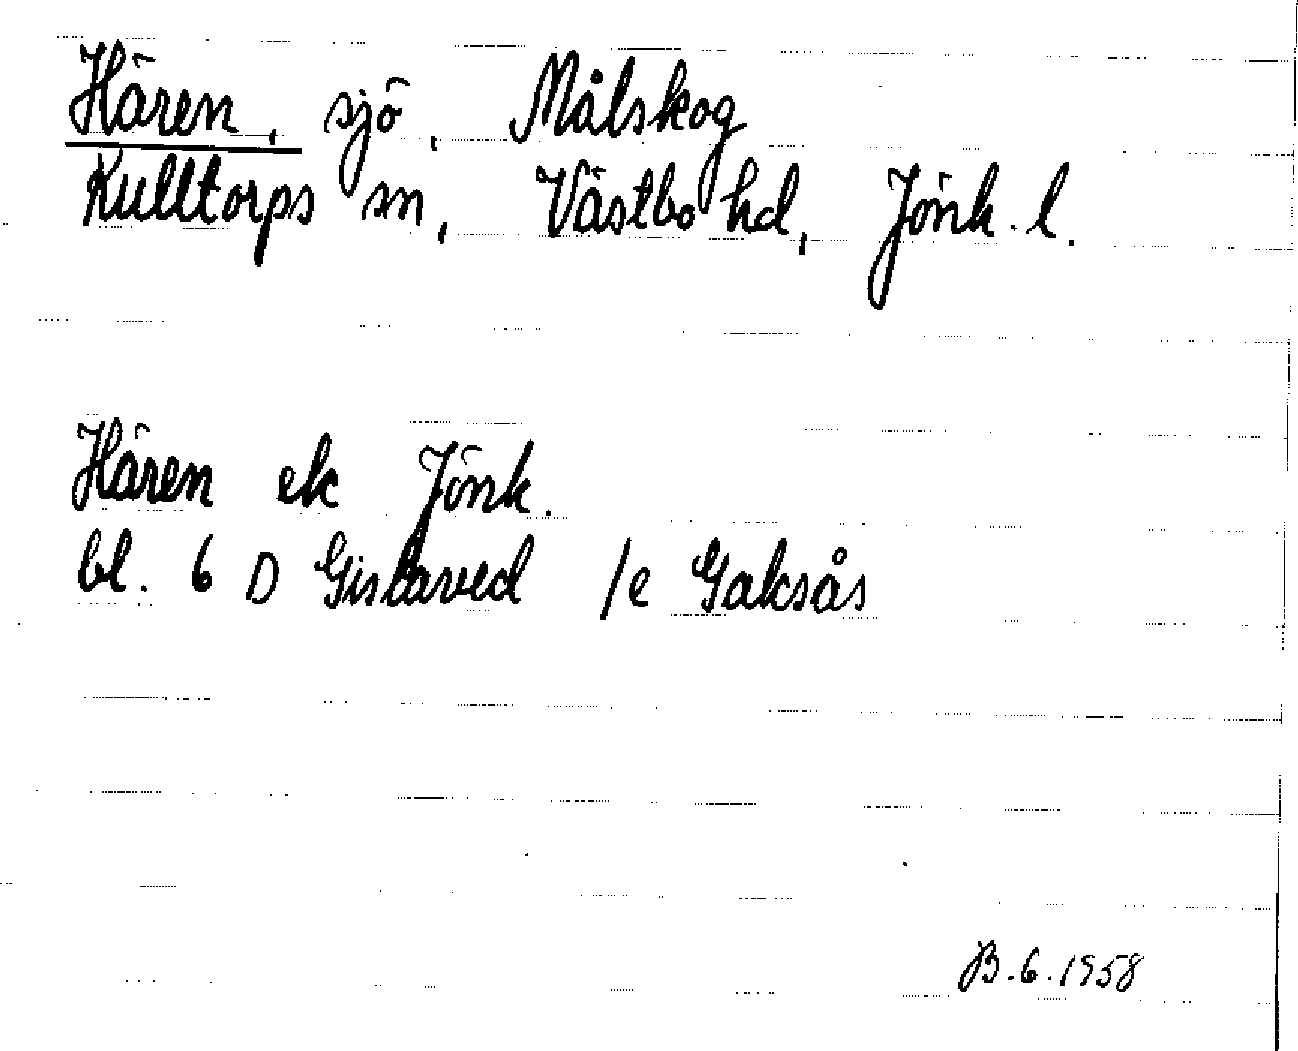 Hären, sjö, Målskog
Kulltorps sn, Västbo hd, Jönk. l.
Hären ek Jönk.
bl. 6 D Gislaved /e Galtsås
B.6.1958